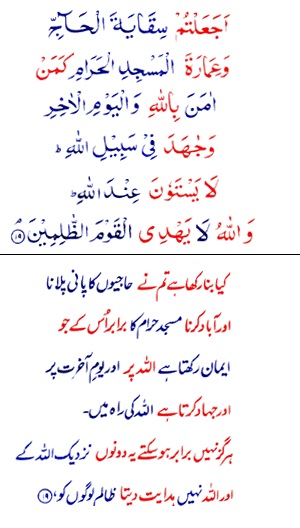 اَجَعَلْتُمْ سِقَايَةَ الْحَآجِّ
وَعِمَارَةَ الْمَسْجِدِ الْحَرَامِ كَمَنْ
اٰمَنَ بِاللّٰهِ وَالْيَوْمِ الْاٰخِرِ
وَجٰهَدَ فِىْ سَبِيْلِ اللّٰهِ ؕ
لَا يَسْتَوٗنَ عِنْدَ اللّٰهِ ؕ
وَ اللّٰهُ لَا يَهْدِى الْقَوْمَ الظّٰلِمِيْنَ ۘ ﴿۱۹﴾
کیا بنا رکھا ہے تم نے حاجیوں کا پانی پلانا
اور آباد کرنا مسجد حرام کا برابر اُس کے جو
ایمان رکھتا ہے اللہ پر اور یومِ آخرت پر
اور جہاد کرتا ہے اللہ کی راہ میں۔
ہرگز نہیں برابر ہوسکتے یہ دونوں نزدیک اللہ کے
اور اللہ نہیں ہدایت دیتا ظالم لوگوں کو، ﴿۱۹﴾